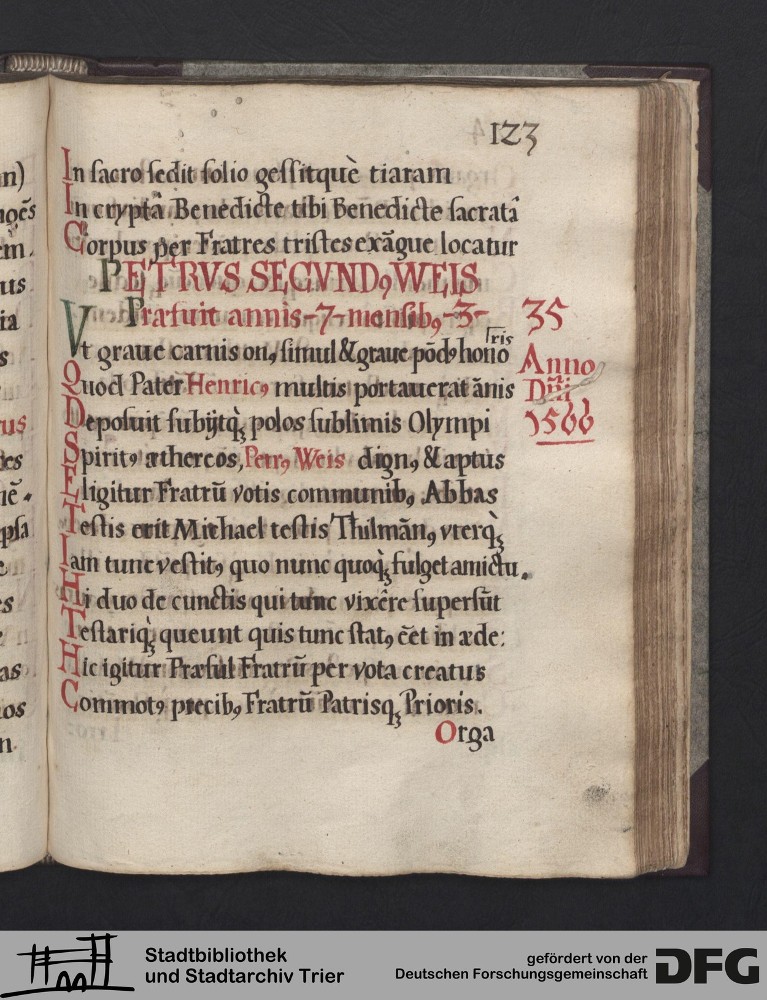 123
In sacro sedit solio gessitquè tiaram
In cryptâ Benedicte tibi Benedicte sacratâ
Corpus per Fratres tristes exãgue locatur
PETRVS SECVNDꝰ WEIS
Præfuit annis-7-mensibꝰ-3-
35
Anno
Dñi
1566
ris
Vt graue carnis onꝰ, simul & graue põdꝰ hono
Quod Pater Henricꝰ multis portauerat ãnis
Deposuit subijtq̃ʒ polos sublimis Olympi
Spiritꝰ æthereos, Petrꝰ Weis dignꝰ & aptus
Eligitur Fratrũ votis communibꝰ Abbas
Testis erit Michael testis Thilmãnꝰ vterq̃ʒ
Iam tunc vestitꝰ quo nunc quoq̃ʒ fulget amictu.
Hi duo de cunctis qui tunc vixêre supersũt
Testariq̃ʒ queunt quis tunc statꝰ ẽet in æde:
Hic igitur Præsul Fratrũ per vota creatus
Commotꝰ precibꝰ Fratrũ Patrisqʒ Prioris.
Orga
n)
em.
us
ia
s
rus
psa
s
as
os
n
Stadtbibliothek
und Stadtarchiv Trier
gefördert von der
Deutschen Forschungsgemeinschaft
DFG